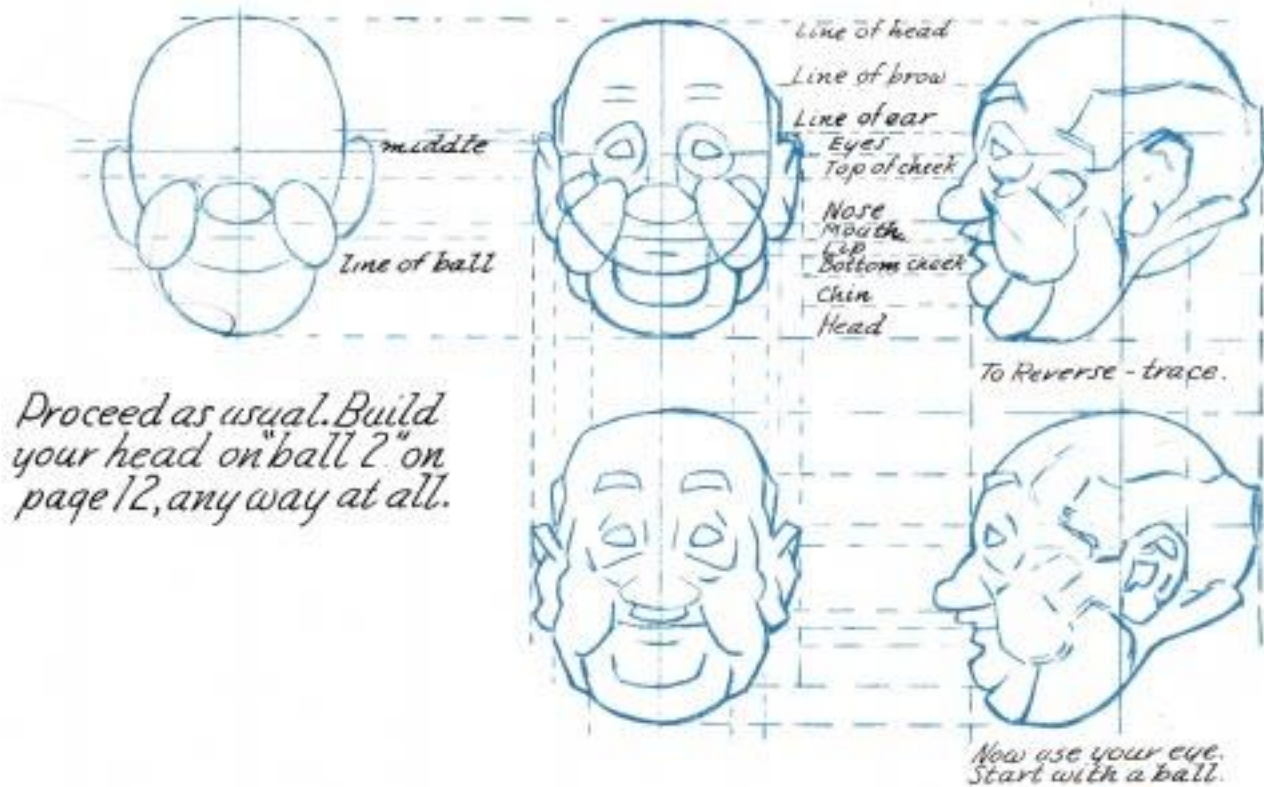 Line of head
Line of brow
Line of ear
middle
Eyes
Top of cheek
Nose
Mouth
Lip
line of ball
Bottom cheek
Chin
Head
To Reverse - trace.
Proceed as usual. Build
your head on "ball 2" on
page 12, any way at all.
Now use your eye.
Start with a ball.